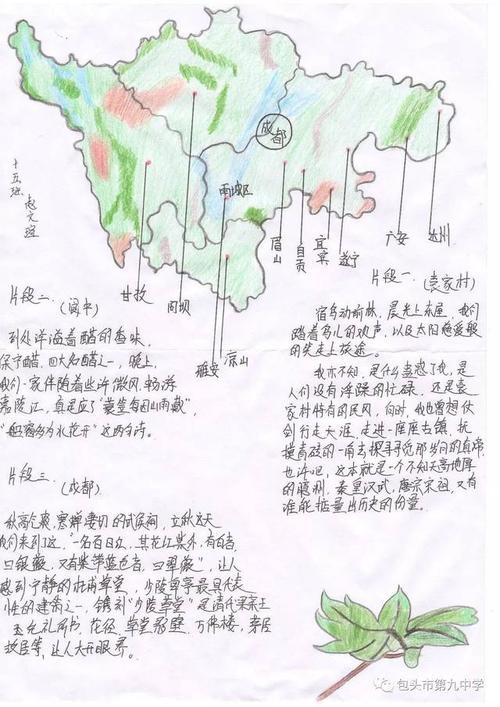 成都
雨城区
十五班
甘孜
阿坝
雅安
凉山
眉山
自贡
宜宾
遂宁
广安
达州
片段一 (袁家村)
宿鸟动前林,晨光上东屋,我们
踏着鸟儿的欢声,以及太阳
的笑走上旅途。
我亦不知,是什么蛊惑了我,是
人们没有浮躁的忙碌,还是袁
家村特有的民风,何时,我也曾想仗
剑行走天涯,走进一座座古镇,抚
摸青砖的一角去探寻寻觅那岁月的直席
也许吧,这本就是一个不知天高地厚
的臆测,秦皇汉武,唐宗宋祖,又有
谁能掂量出历史的份量。
片段二 (阆中)
到处洋溢着醋的香味,
保宁醋,四大名醋之一,晚上,
我们一家伴随着些许微风,畅游
嘉陵江,真是应了
这两句诗。
片段三 (成都)
秋高气爽,寒蝉凄切的武侯祠,立秋这天
我们来到了这,"一名百日红,其花红紫外,有白者,
曰银薇,又有紫带蓝色者,曰翠薇",让人
感到宁静的杜甫草堂,少陵草亭最具代表
性的建筑之一,镌刻"少陵草堂"是清代果亲王
允礼所书,花径,草堂影壁,万佛楼,茅屋
故居等,让人大开眼界。
包头市第九中学